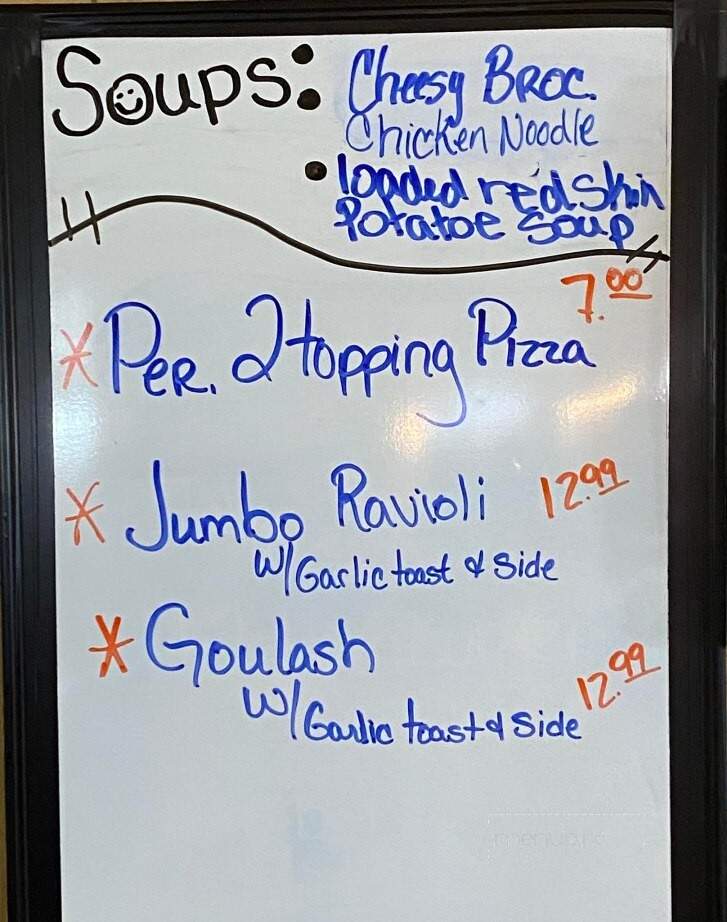 Soups: Cheesy Broc.
Chicken Noodle
• loaded redskin
Potatoe Soup
7.00
* Per. 2 topping Pizza
* Jumbo Ravioli 12.99
W/Garlic toast & Side
* Goulash
W/Garlic toast & Side 12.99